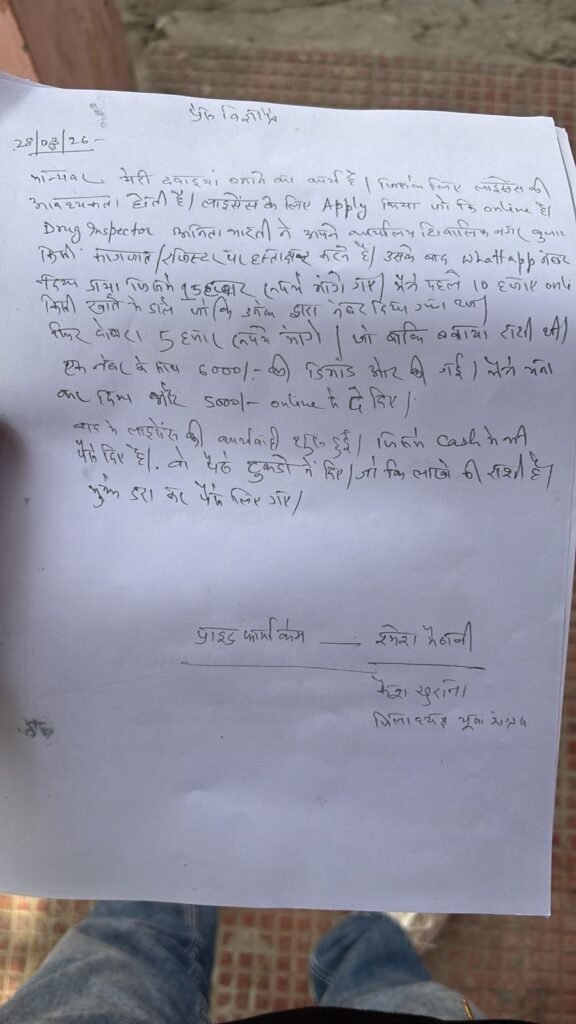 प्रेस विज्ञप्ति
28/03/26
मान्यवर मेरी दवाइयां बनाने का कार्य है। जिसके लिए लाइसेंस की
आवश्यकता होती है। लाइसेंस के लिए Apply किया जो कि online है।
Drug Inspector अनिता भारती ने अपने कार्यालय शिवालिक नगर बुलाकर
किसी कागजात/रजिस्टर पर हस्ताक्षर करने है। उसके बाद whattapp नंबर
दिया गया जिसमे रूपये मांगे गए। मैंने पहले 10 हजार onli
किसी खाते मे डाले जो कि उनके द्वारा नंबर दिया गया था।
फिर दोबारा 5 हजार रूपये मांगे। जो बाकि बकाया राशी थी।
एक नंबर के साथ 6000/- की डिमांड और की गई। मैंने मना
कर दिया और 5000/- online मे दे दिए।
बाद मे लाइसेंस की कार्यवाही शुरू हुई। जिसमे Cash मे भी
पैसे दिए है। वो पैसे टुकडो मे दिए। जो कि लाखो की राशी है।
मुझे डरा कर पैसे लिए गए।
प्राइड फार्मा — रमेश
खुराना
जिलाध्यक्ष युवा